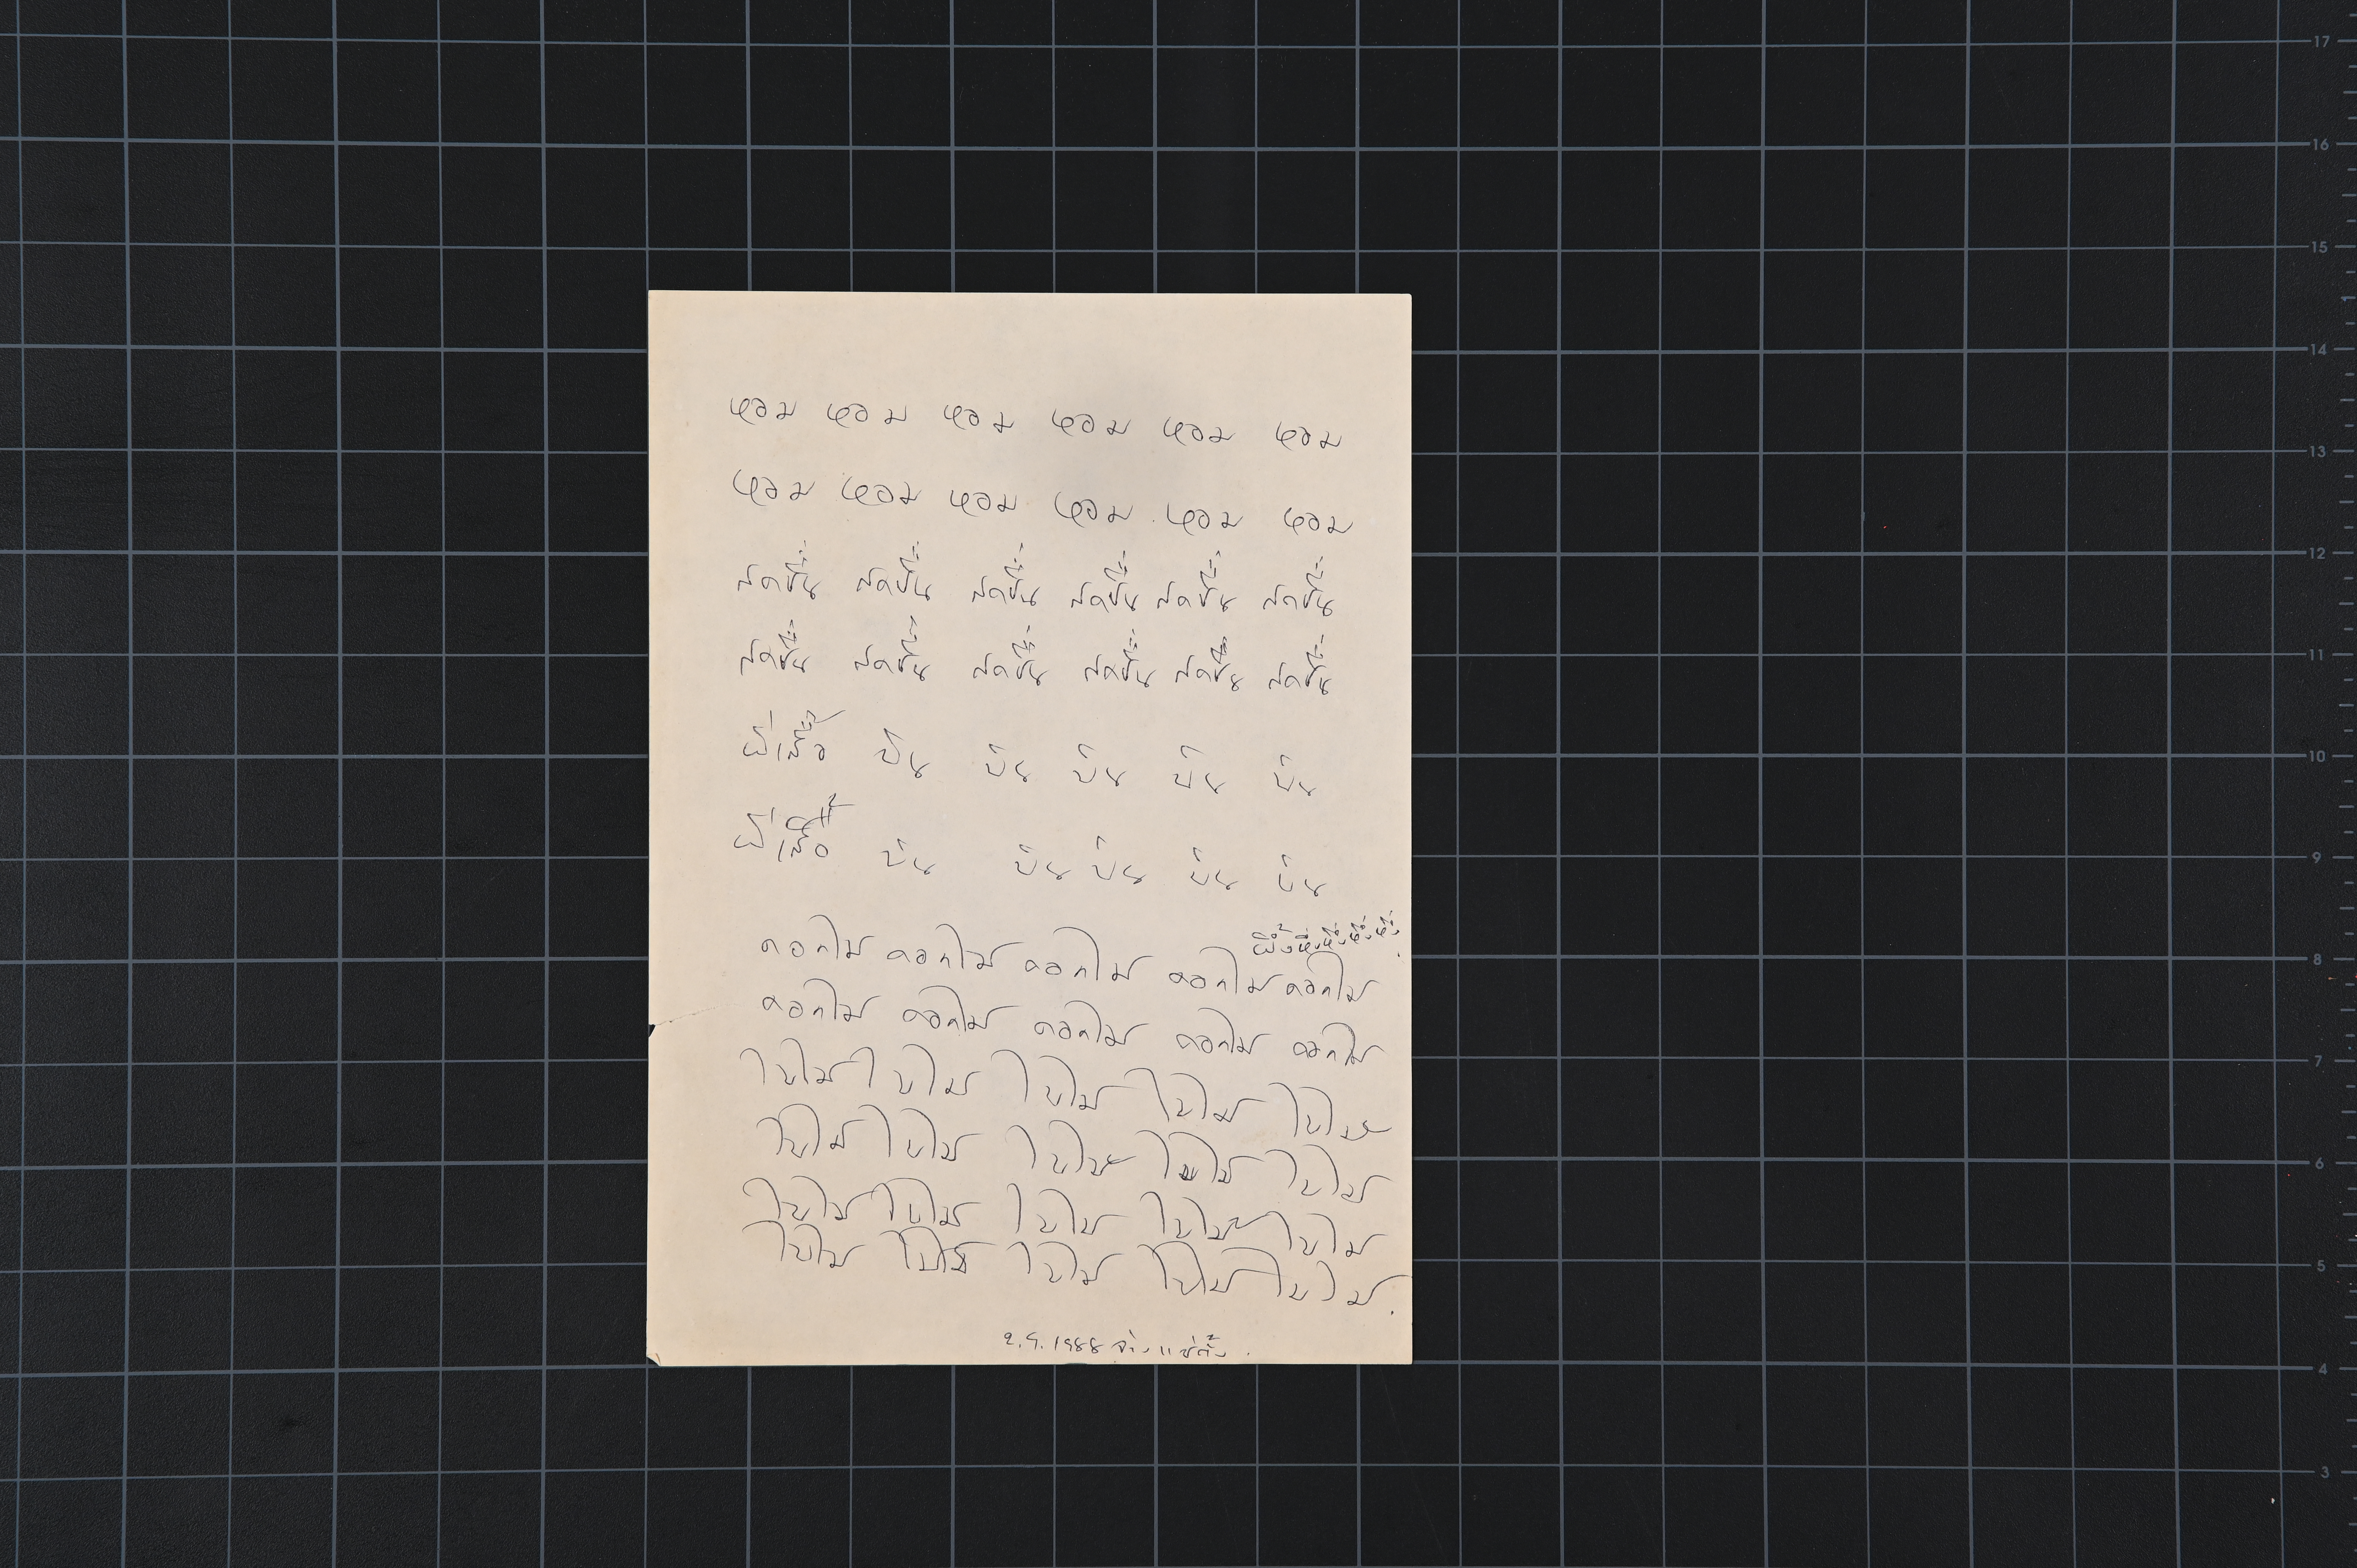 หอม หอม หอม หอม หอม หอม
หอม หอม หอม หอม หอม หอม
สดชื่น สดชื่น สดชื่น สดชื่น สดชื่น สดชื่น
สดชื่น สดชื่น สดชื่น สดชื่น สดชื่น สดชื่น
ผีเสื้อ บิน บิน บิน บิน บิน
ผีเสื้อ บิน บิน บิน บิน บิน
ผึ้งหึ่งหึ่งหึ่งหึ่ง
ดอกไม้ ดอกไม้ ดอกไม้ ดอกไม้ ดอกไม้
ดอกไม้ ดอกไม้ ดอกไม้ ดอกไม้ ดอกไม้
ใบไม้ ใบไม้ ใบไม้ ใบไม้ ใบไม้
ใบไม้ ใบไม้ ใบไม้ ใบไม้ ใบไม้
ใบไม้ ใบไม้ ใบไม้ ใบไม้ ใบไม้
ใบไม้ ใบไม้ ใบไม้ ใบไม้ ใบไม้.
2.9.1988 จ่าง แซ่ตั้ง
17
16
15
14
13
12
11
10
9
8
7
6
5
4
3